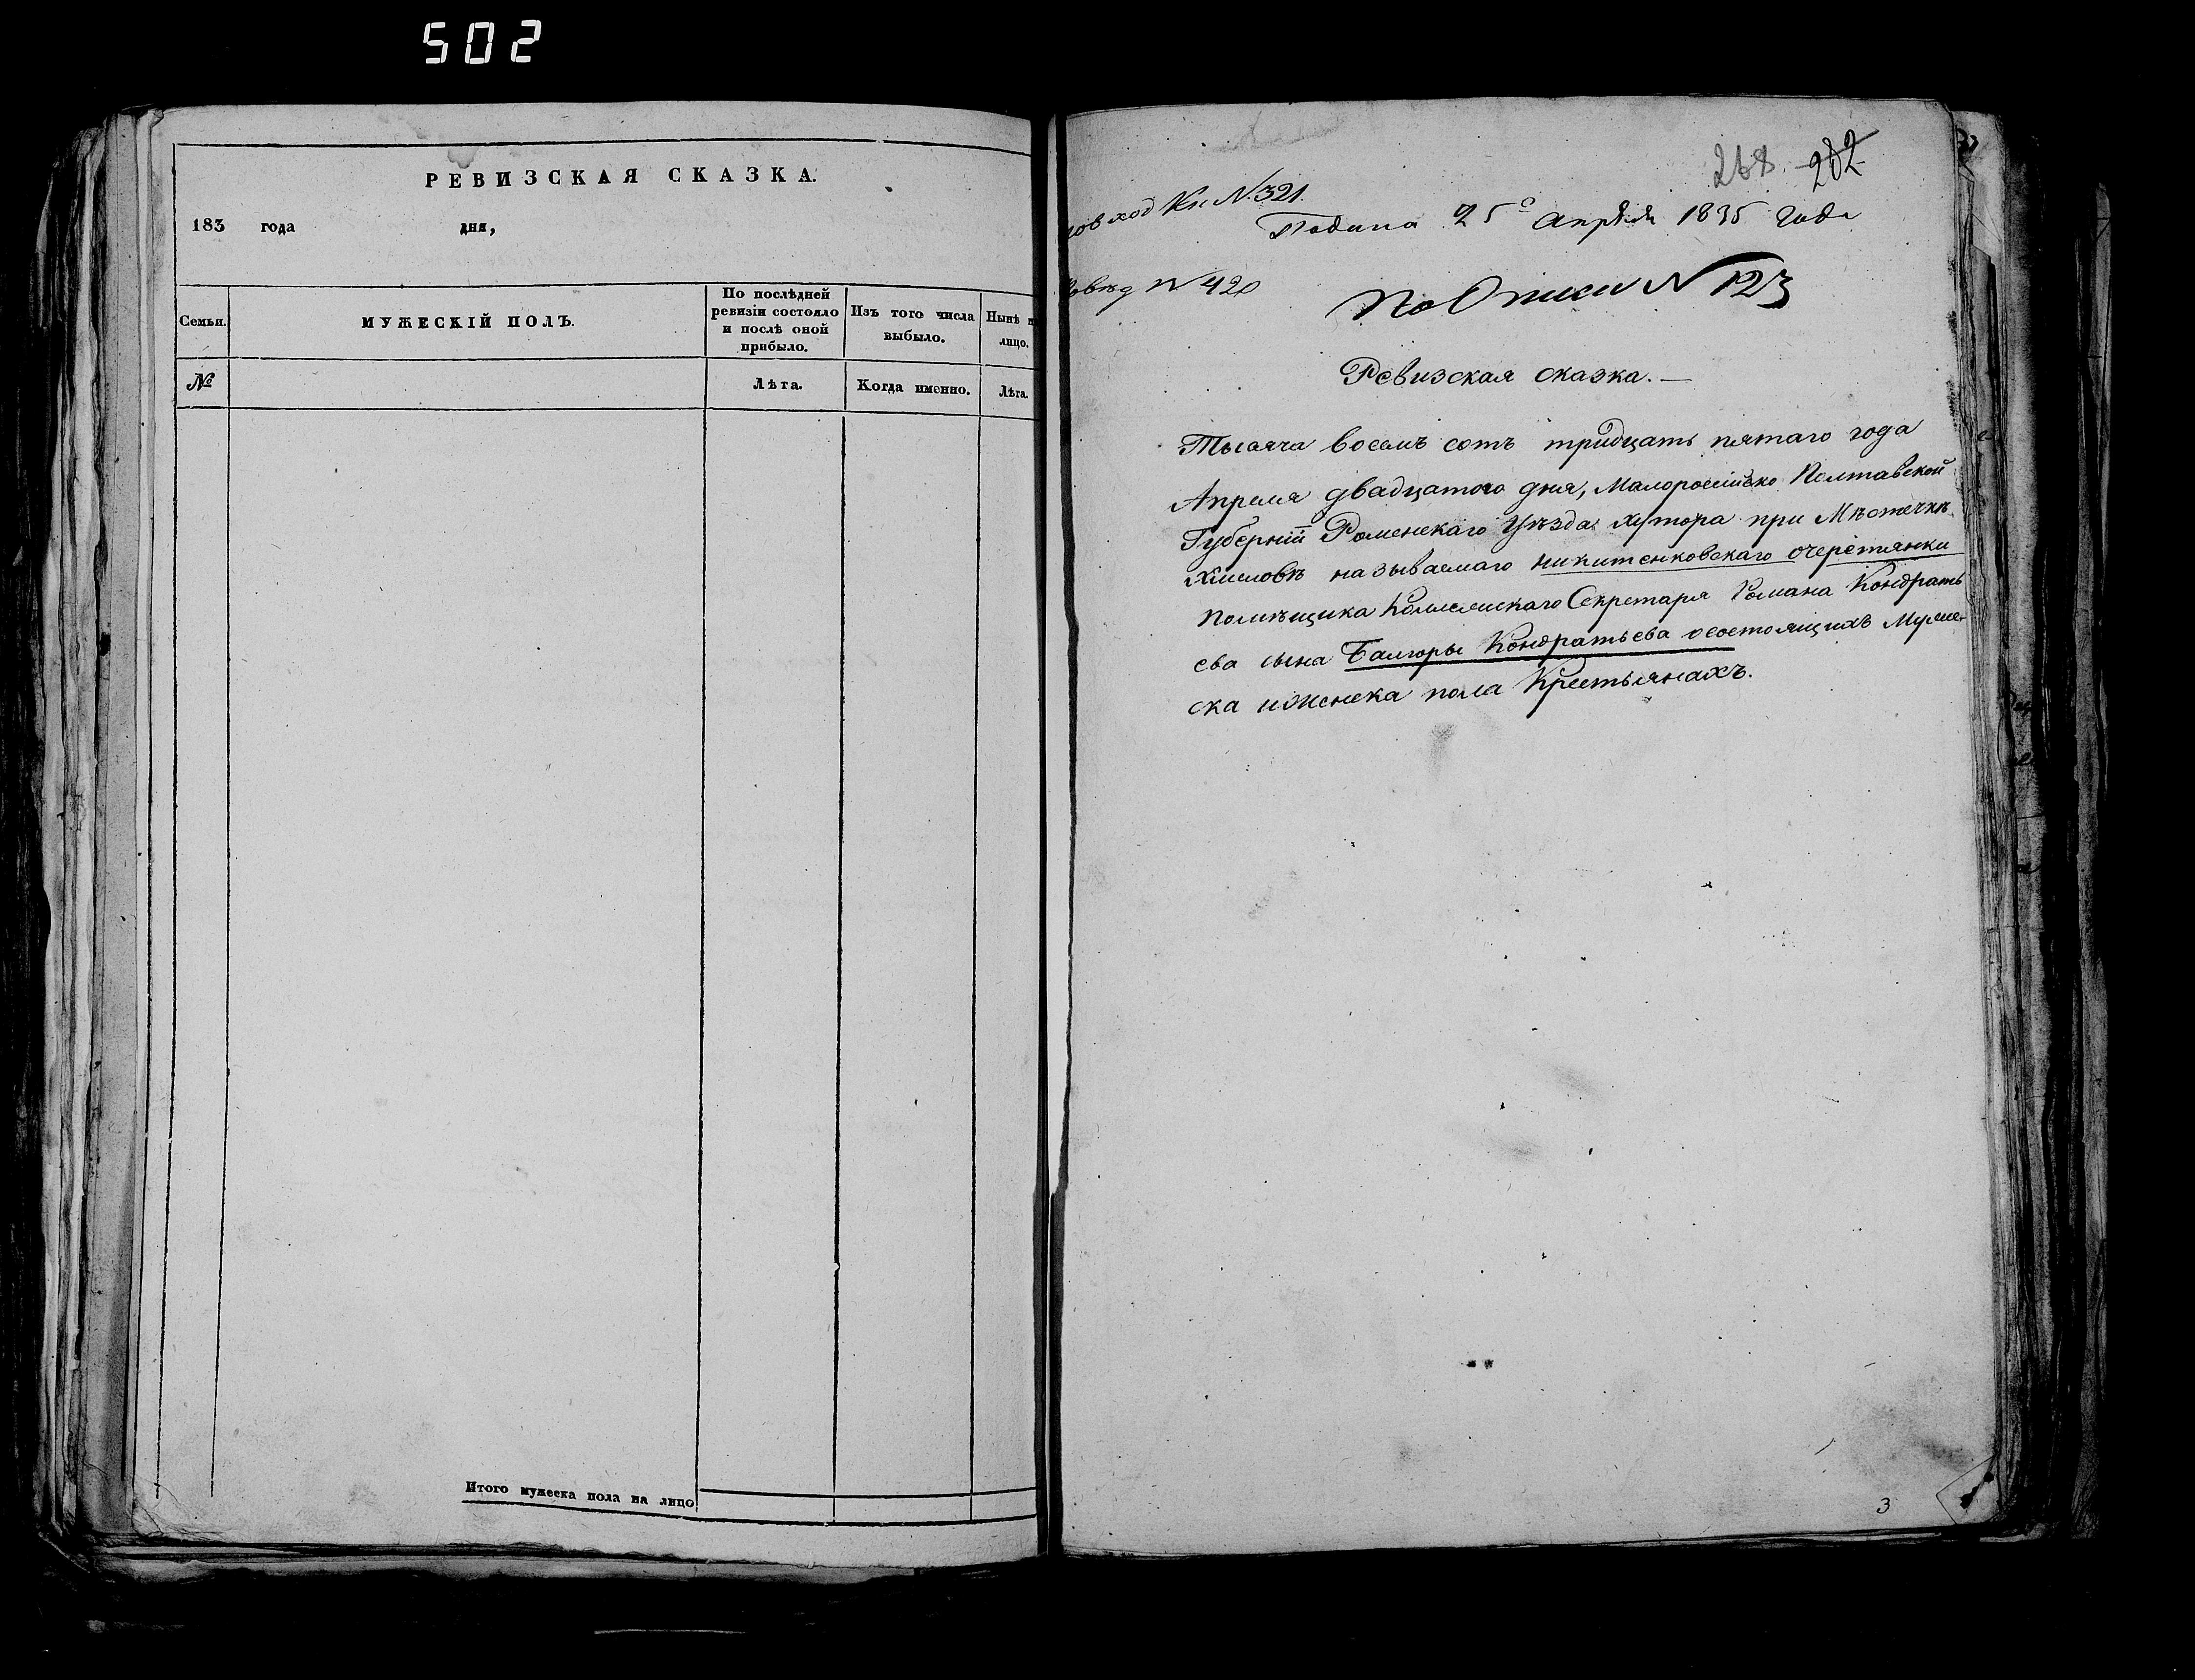 502
РЕВИЗСКАЯ СКАЗКА.
183 года дня,
Семьи.
МУЖЕСКІЙ ПОЛЪ.
По послѣдней
ревизіи состояло
и послѣ оной
прибыло.
Изъ того числа
выбыло.
Нынѣ н
лицо.
№
Лѣта.
Когда именно.
Лѣта.
Итого мужеска пола на лицо
268. 202
ход Кн N. 321.
Подана 25 апреля 1835 года
N 420
По Описи N 123
Ревизская сказка.—
Тысяча восемъ сотъ тридцать пятаго года
Апреля двадцатого дня, Малороссійско Полтавской
Губерніи Роменскаго Уѣзда хутора при Мѣстечкѣ
Хмеловѣ называемаго никитенковскаго очеретянки
помѣщика Коллежскаго Секретаря Романа Кондрать
ева сына Кондратьева осостоящихъ Мужес
ска иженска пола Крестьянахъ.
3